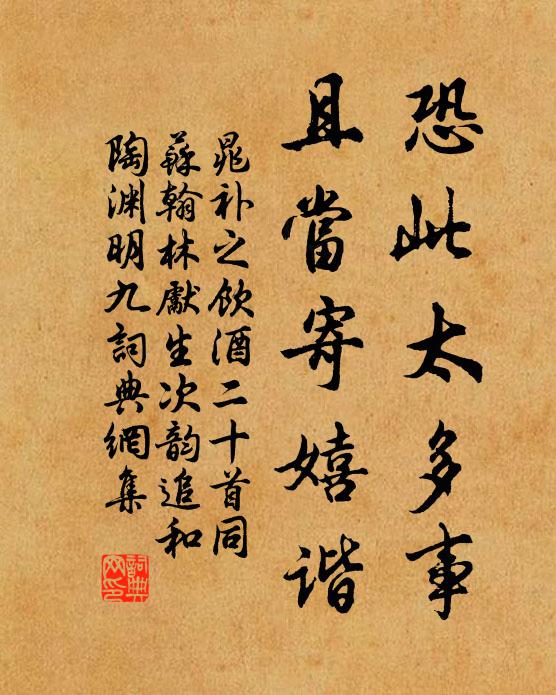 恐此太多事
且當寄嬉谐
晁补之饮酒二十首同
蘇翰林獻生次韵追和
陶渊明九詞典網集
詞典
网印